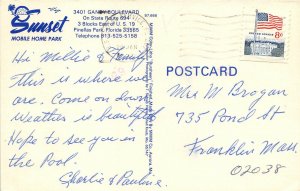 3401 GANDY BOULEVARD
On State Route 694
3 Blocks East of U.S. 19
Pinellas Park, Florida 33565
Telephone 813-525-5158
Sunset
MOBILE HOME PARK
Hi Millie & Family
This is where we
are. Come on down
weather is beautiful
Hope to see you in
the Pool.
Charlie & Pauline
POSTCARD
Mr M Brogan
735 Pond St
Franklin Mass.
02038